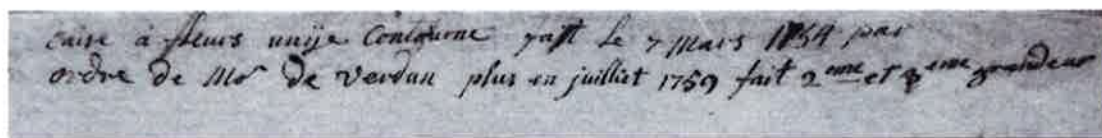 caise à fleurs unije Contourne fait le 7 Mars 1754 par
ordre de Mr de Verdun plus en juilliet 1759 fait 2eme et 3eme grandeur